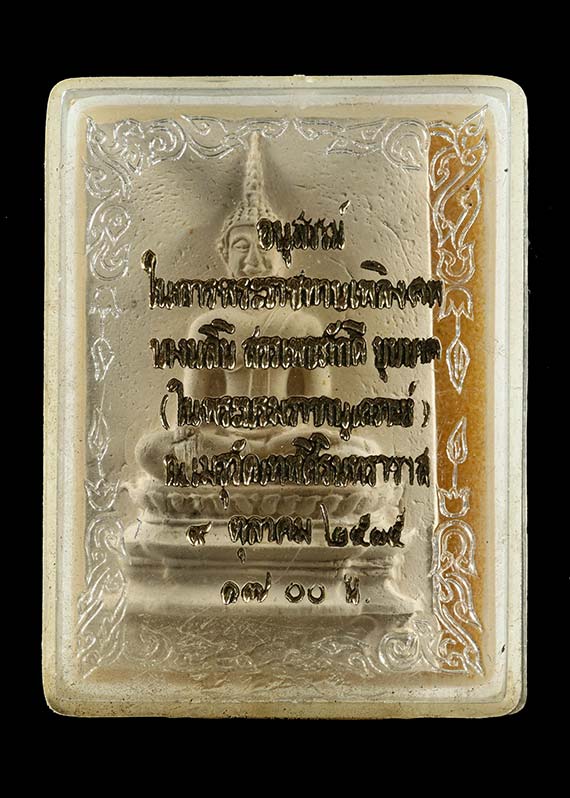 อนุสรณ์
ในการพระราชทานเพลิงศพ
สารเพทภักดี
(ในพระบรมราชานุเคราะห์)
ณ เมรุวัดเทพศิรินทราวาส
๙ ตุลาคม ๒๕๒๕
๑๗ ๐๐ น.